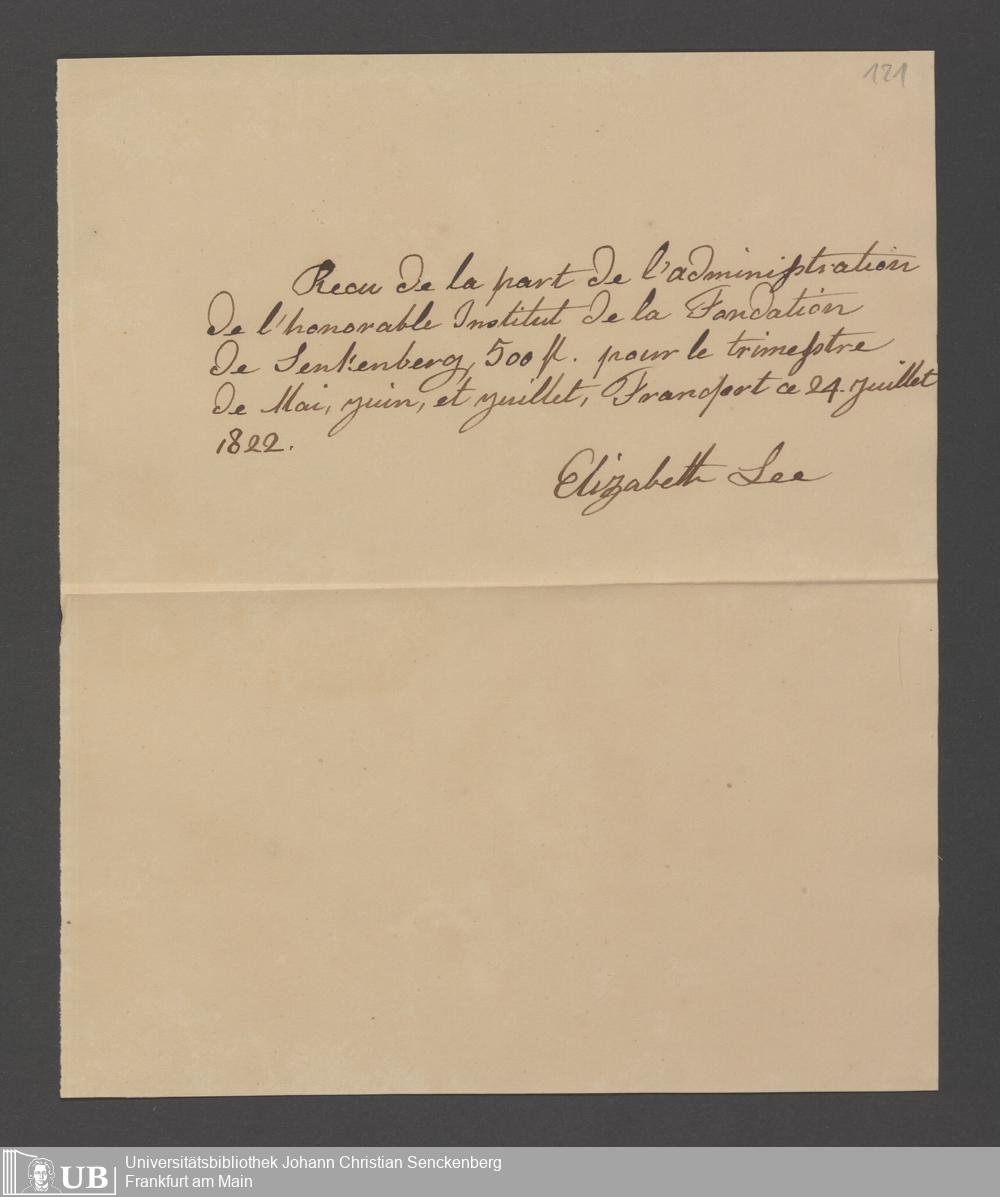 121
Recu de la part de l'administration
de l'honorable Institut de la Fondation
de Senkenberg, 500 fl. pour le trimestre
de Mai, juin, et juillet, Francfort ce 24. juillet
1822.
Elizabeth Lee
UB
Universitätsbibliothek Johann Christian Senckenberg
Frankfurt am Main